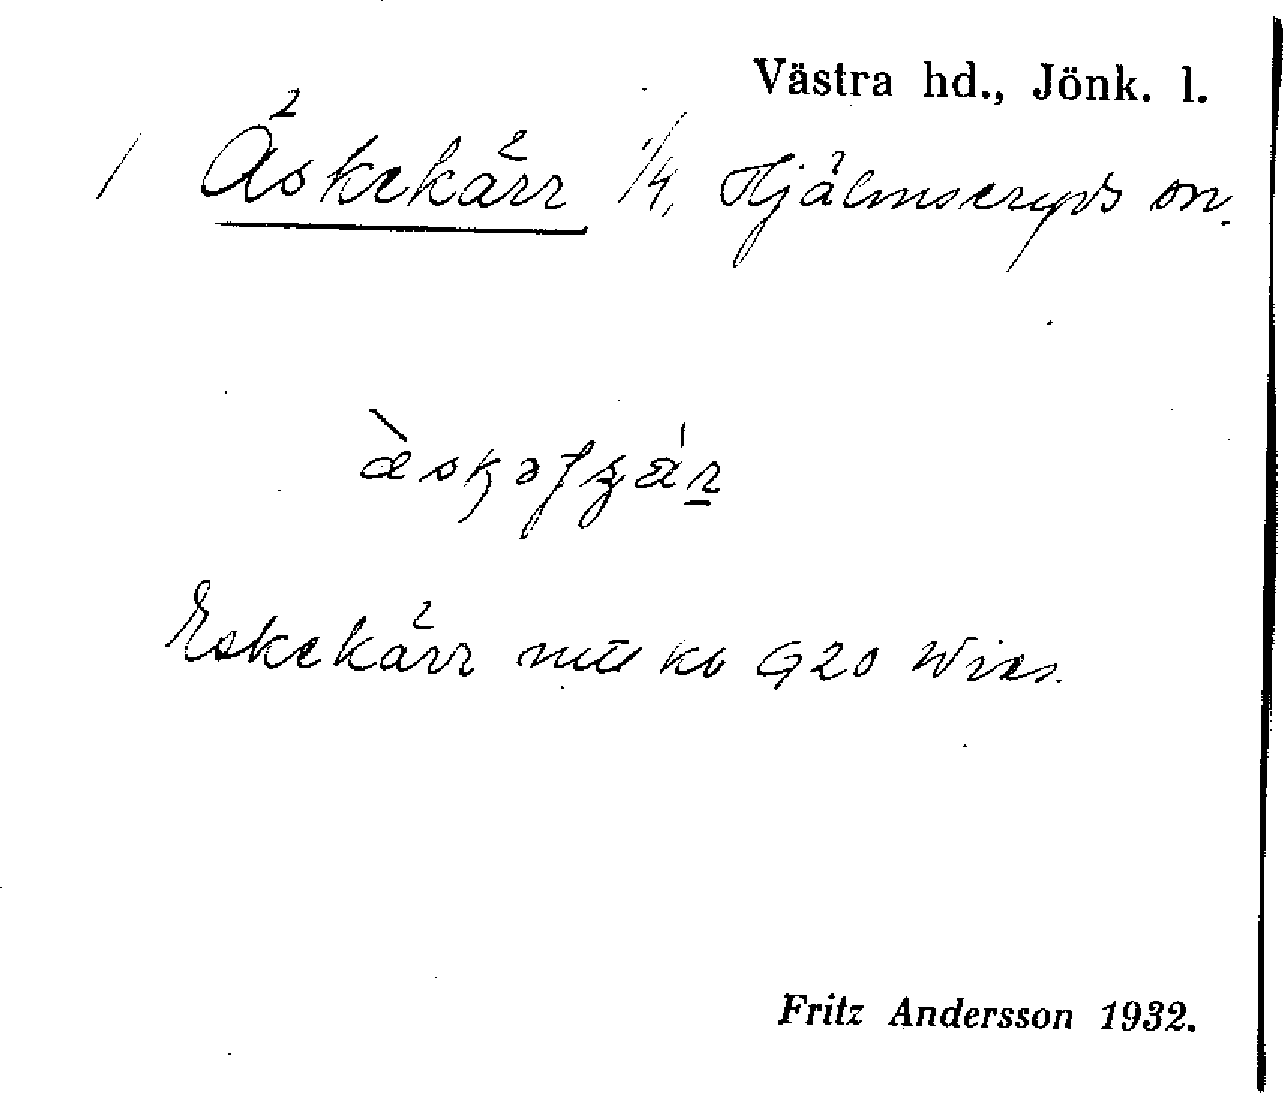 Västra hd., Jönk. l.
1 Äskekärr 1/4, Hjälmseryds sn.
Eskekärr G20 Wies.
Fritz Andersson 1932.